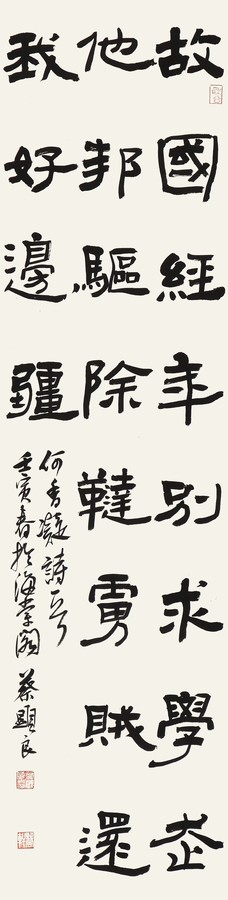 故國經年別求學走
他邦驅除韃虜賊還
我好邊疆
何香凝詩一首
壬寅春於海棠閣 蔡顯良